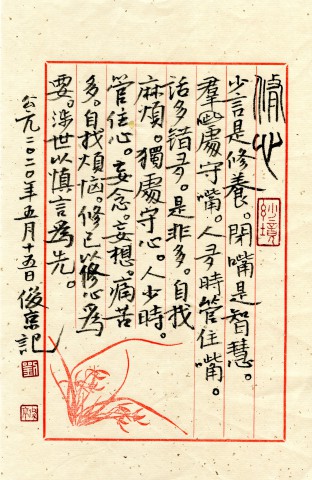 脩心
少言是修養。閉嘴是智慧。
羣處守嘴。人多時管住嘴。
話多錯多。是非多。自找
麻煩。獨處守心。人少時。
管住心。妄念。妄想。痛苦
多。自找煩惱。修己以修心為
要。涉世以慎言為先。
公元二〇二〇年五月十五日 俊京記